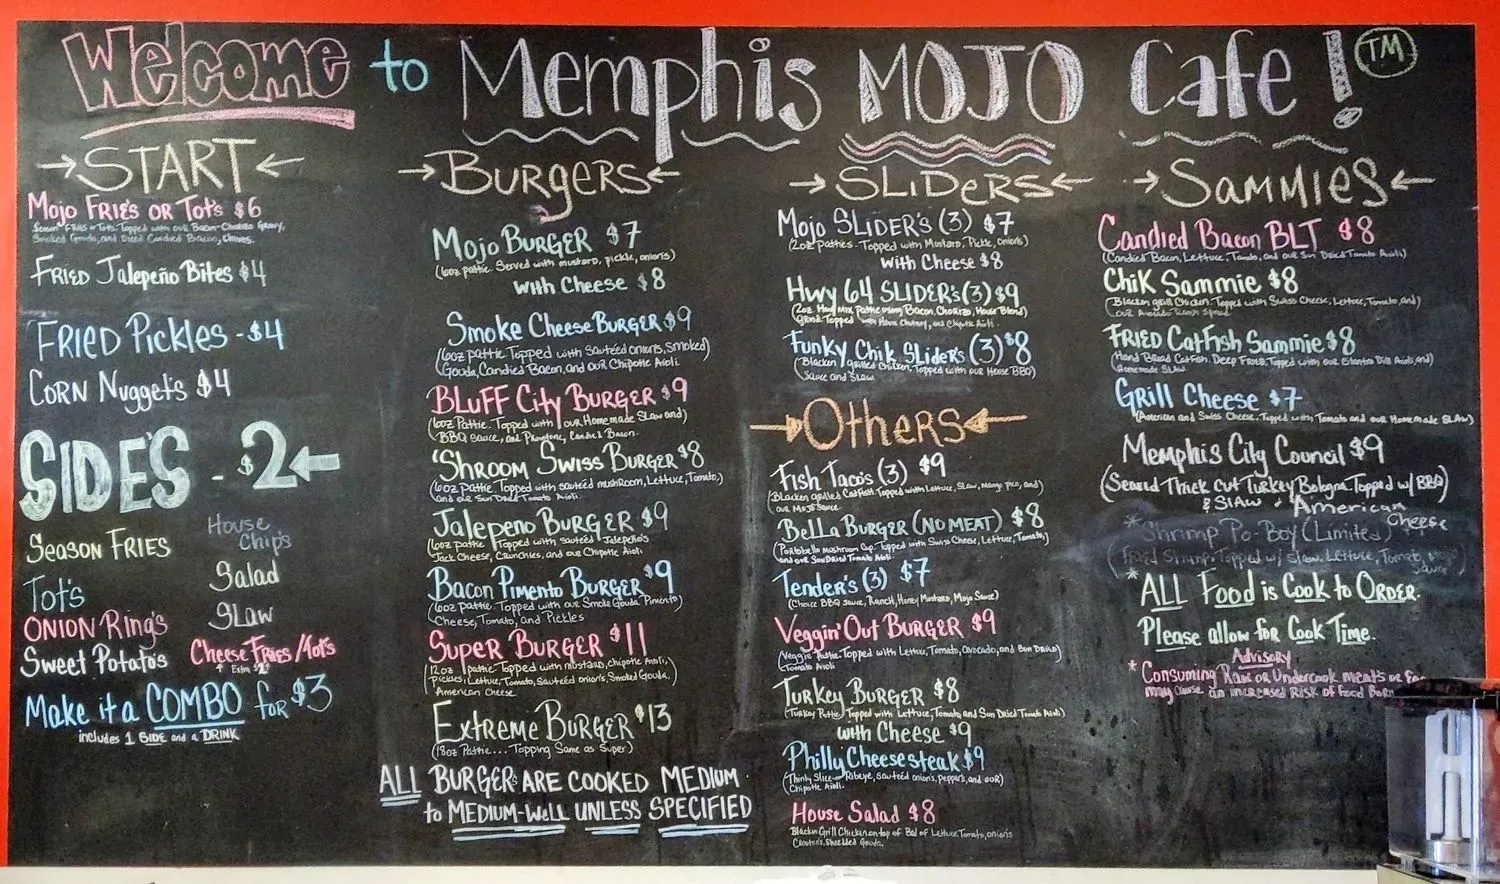 Welcome to Memphis MOJO Cafe! TM
START
Mojo Fries or Tots $6
Season Fries or Tots. Topped with our Bacon-Chorizo Gravy,
Smoked Gouda, and Diced Candied Bacon, Chives.
Fried Jalepeño Bites $4
Fried Pickles - $4
Corn Nugget's $4
SIDE'S - $2
Season Fries
Tot's
Onion Ring's
Sweet Potato's
House Chip's
Salad
Slaw
Cheese Fries/Tot's
Make it a COMBO for $3
includes 1 Side and a Drink
Burgers
Mojo Burger $7
(6oz pattie. Served with mustard, pickle, onions)
with Cheese $8
Smoke Cheese Burger $9
(6oz pattie. Topped with Sautéed onions, Smoked)
Gouda, Candied Bacon, and our Chipotle Aioli.
Bluff City Burger $9
(6oz Pattie. Topped with our Homemade Slaw and)
BBQ Sauce, and Candied Bacon.
'Shroom Swiss Burger $8
(6oz Pattie. Topped with sautéed mushroom, Lettuce, Tomato,)
and our Sun Dried Tomato Aioli.
Jalepeno Burger $9
(6oz Pattie Topped with sautéed Jalepeño's
Jack Cheese, Crunchies, and our Chipotle Aioli
Bacon Pimento Burger $9
(6oz Pattie. Topped with our Smoke Gouda Pimento)
Cheese, Tomato, and Pickles
Super Burger $11
(12oz pattie. Topped with mustard, Chipotle Aioli,)
Pickles, Lettuce, Tomato, Sautéed onion's, Smoked Gouda,
American Cheese.
Extreme Burger $13
(18oz Pattie... Topping Same as Super)
ALL Burgers are cooked medium
to Medium-Well unless specified
Sliders
Mojo Slider's (3) $7
(2oz patties. Topped with Mustard, Pickle, onions)
with Cheese $8
Hwy 64 Slider's (3) $9
(2oz. Hwy Mix Pattie using Bacon, Chorizo, House Blend)
Grind. Topped with House Chutney, and Chipotle Aioli.
Funky Chik Sliders (3) $8
(Blacken grilled Chicken, Topped with our House BBQ)
Sauce and Slaw.
Others
Fish Taco's (3) $9
(Blacken grilled Catfish. Topped with Lettuce, Slaw, Mango Pico, and)
our Mojo Sauce
Bella Burger (No Meat) $8
(Portobello Mushroom Cap. Topped with Swiss Cheese, Lettuce, Tomato,)
and our Sun Dried Tomato Aioli
Tender's (3) $7
(Choice BBQ Sauce, Ranch, Honey Mustard, Mojo Sauce)
Veggin' Out Burger $9
(Veggie Pattie. Topped with Lettuce, Tomato, Avocado, and Sun Dried)
Tomato Aioli
Turkey Burger $8
(Turkey Pattie. Topped with Lettuce, Tomato, and Sun Dried Tomato Aioli)
with Cheese $9
Philly Cheesesteak $9
(Thinly Slice Ribeye, sautéed onion's, pepper's, and our)
Chipotle Aioli.
House Salad $8
Blacken Grill Chicken on top of Bed of Lettuce, Tomato, onion's
Crouton's, Shredded Gouda.
Sammies
Candied Bacon BLT $8
(Candied Bacon, Lettuce, Tomato, and our Sun Dried Tomato Aioli)
Chik Sammie $8
(Blacken grill Chicken. Topped with Swiss Cheese, Lettuce, Tomato, and)
our Avocado Ranch Spread
Fried Catfish Sammie $8
(Hand Bread Catfish. Deep Fried, Topped with our Cilantro Dill Aioli, and)
Homemade Slaw.
Grill Cheese $7
(American and Swiss Cheese. Topped with Tomato and our Homemade Slaw)
Memphis City Council $9
(Seared Thick cut Turkey Bologna Topped w/ BBQ)
& Slaw & American Cheese
* Shrimp Po-Boy (Limited)
(Fried Shrimp. Topped w/ Slaw, Lettuce, Tomato, Sauce
* ALL Food is Cook to Order.
Please allow for Cook Time.
Advisory
* Consuming Raw or Undercook meats or
may cause an increased Risk of Food Born